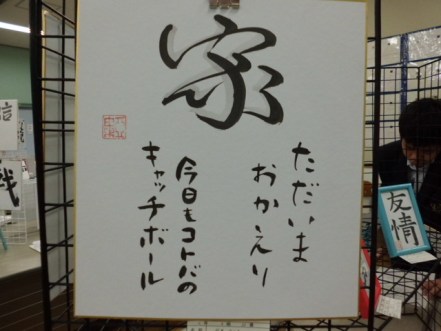 家
ただいま
おかえり
今日もコトバの
キャッチボール
友情